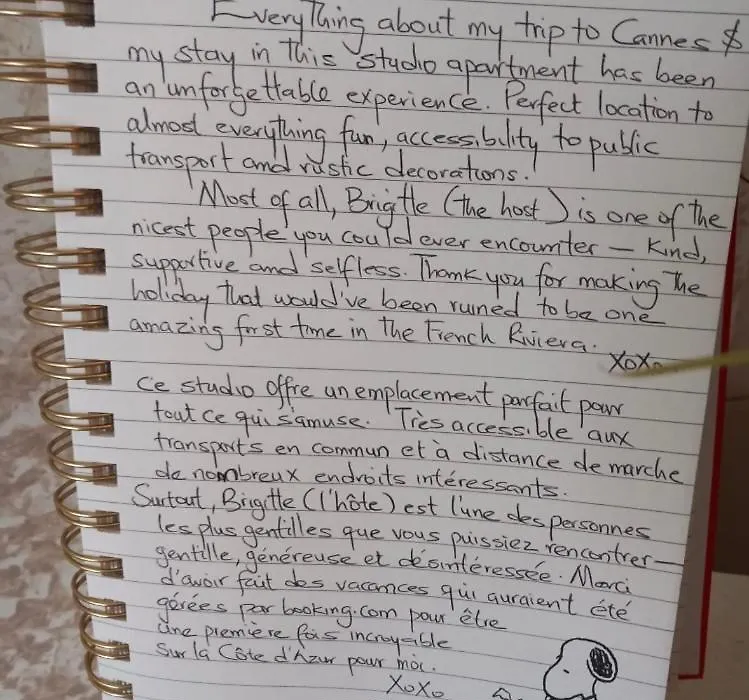 Everything about my trip to Cannes &
my stay in this studio apartment has been
an unforgettable experience. Perfect location to
almost everything fun, accessibility to public
transport and rustic decorations.
Most of all, Brigtte (the host) is one of the
nicest people you could ever encounter – Kind,
supportive and selfless. Thank you for making the
holiday that would've been ruined to be one
amazing first time in the French Riviera.
XoXo
Ce studio offre un emplacement parfait pour
tout ce qui s'amuse. Très accessible aux
transports en commun et à distance de marche
de nombreux endroits intéressants.
Surtout, Brigitte (l'hôte) est l'une des personnes
les plus gentilles que vous puissiez rencontrer –
gentille, généreuse et désintéressée. Merci
d'avoir fait des vacances qui auraient été
gérées par booking.com pour être
une première fois incroyable
Sur la Côte d'Azur pour moi.
XoXo